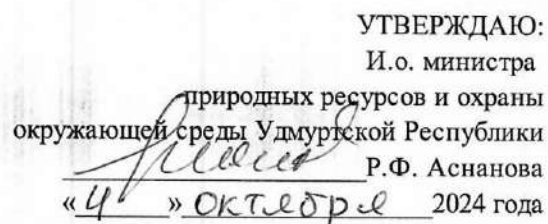 УТВЕРЖДАЮ:
И.о. министра
природных ресурсов и охраны
окружающей среды Удмуртской Республики
Р.Ф. Аснанова
«4» октября 2024 года